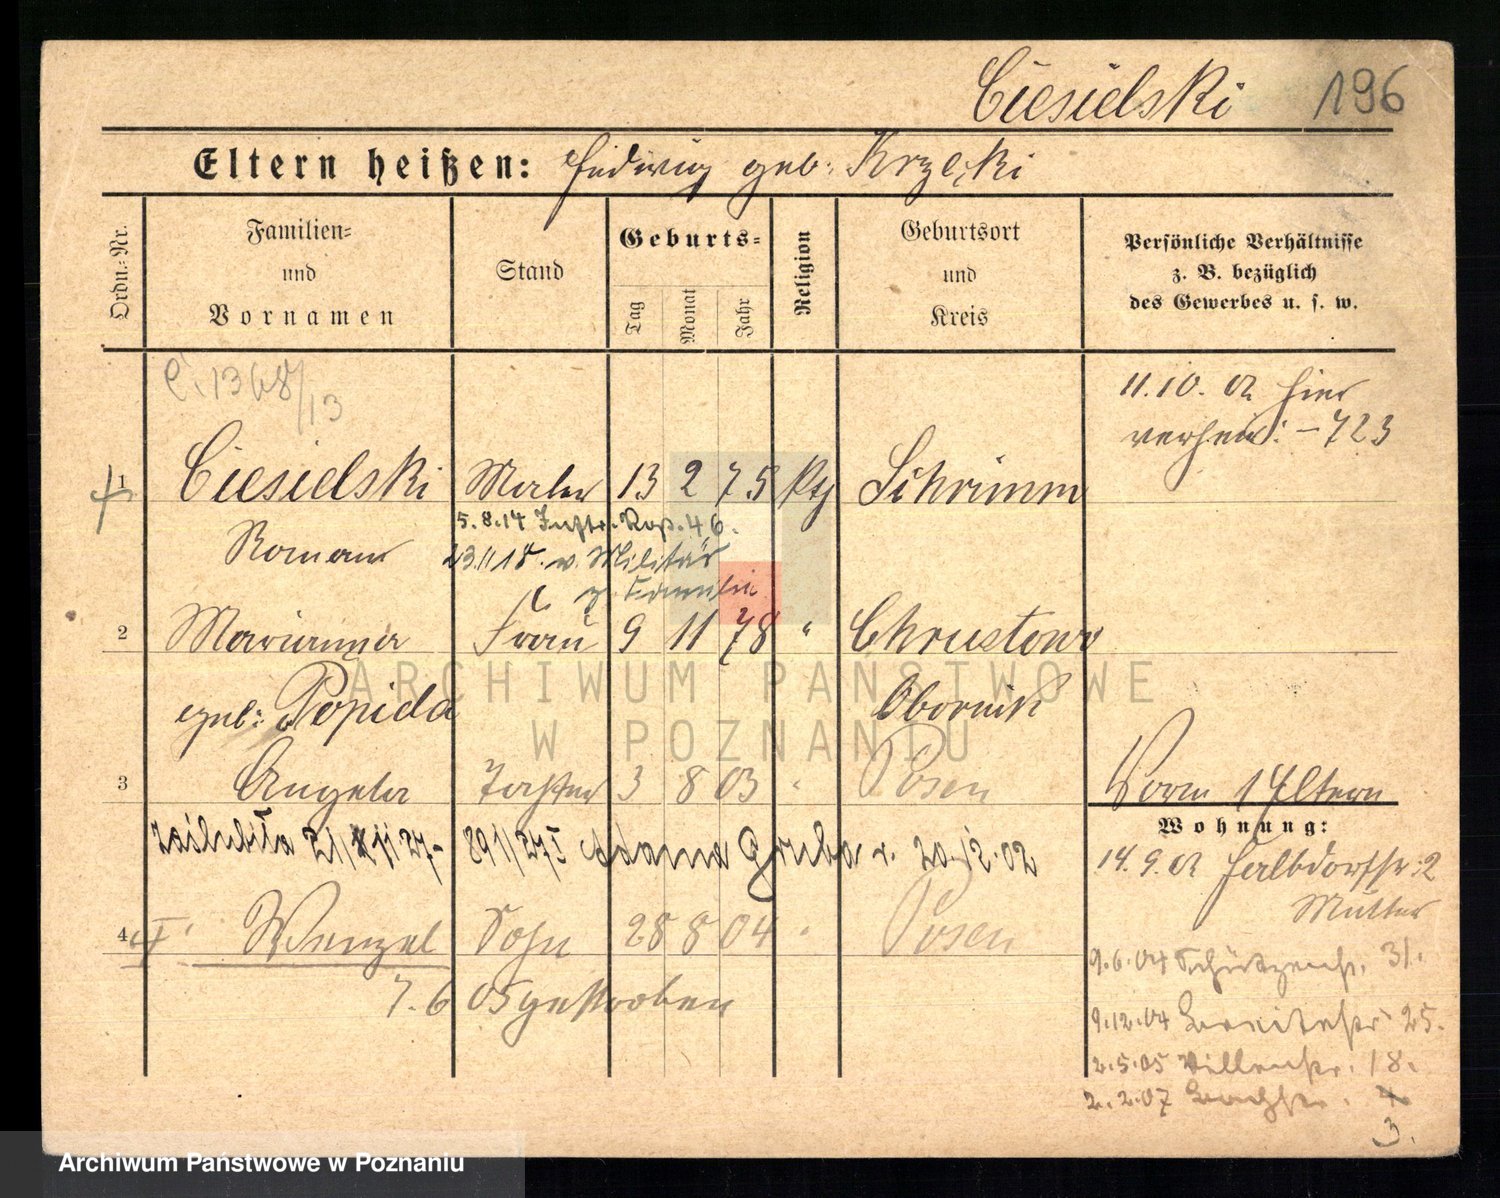 Ciesielski 196
Eltern heißen: Hedwig geb: Krzycki
Ordn.-Nr.
Familien-
und
Vornamen
Stand
Geburts-
Tag
Monat
Jahr
Religion
Geburtsort
und
Kreis
Persönliche Verhältnisse
z. B. bezüglich
des Gewerbes u. s. w.
C. 1368/13
11.10. 02 hier
verheir: - 723
1 Ciesielski Maler 13 2 75 Kth Schrimm
5.8.14 46.
Roman
23.11.18. v. Militär
z. Familie
2 Marianna Frau 9 11 78 " Chrustowo
geb: Popida Obornik
3 Angela Tochter 3 8 03 " Posen
Vorm 1 Eltern
zaślubiła 21/ 11 27 - 891/27 I Adama r. 20.12.02
Wohnung:
14.9.02 Halbdorfstr: 2
Mutter
4 Wenzel Sohn 28 8 04 " Posen
9.6.04 Schützenstr. 31.
7.6 05 gestorben
9.12.04 Breitestr 25.
2.5.05 Villenstr. 18.
2.2.07 4
3.
ARCHIWUM PAŃSTWOWE
W POZNANIU
Archiwum Państwowe w Poznaniu